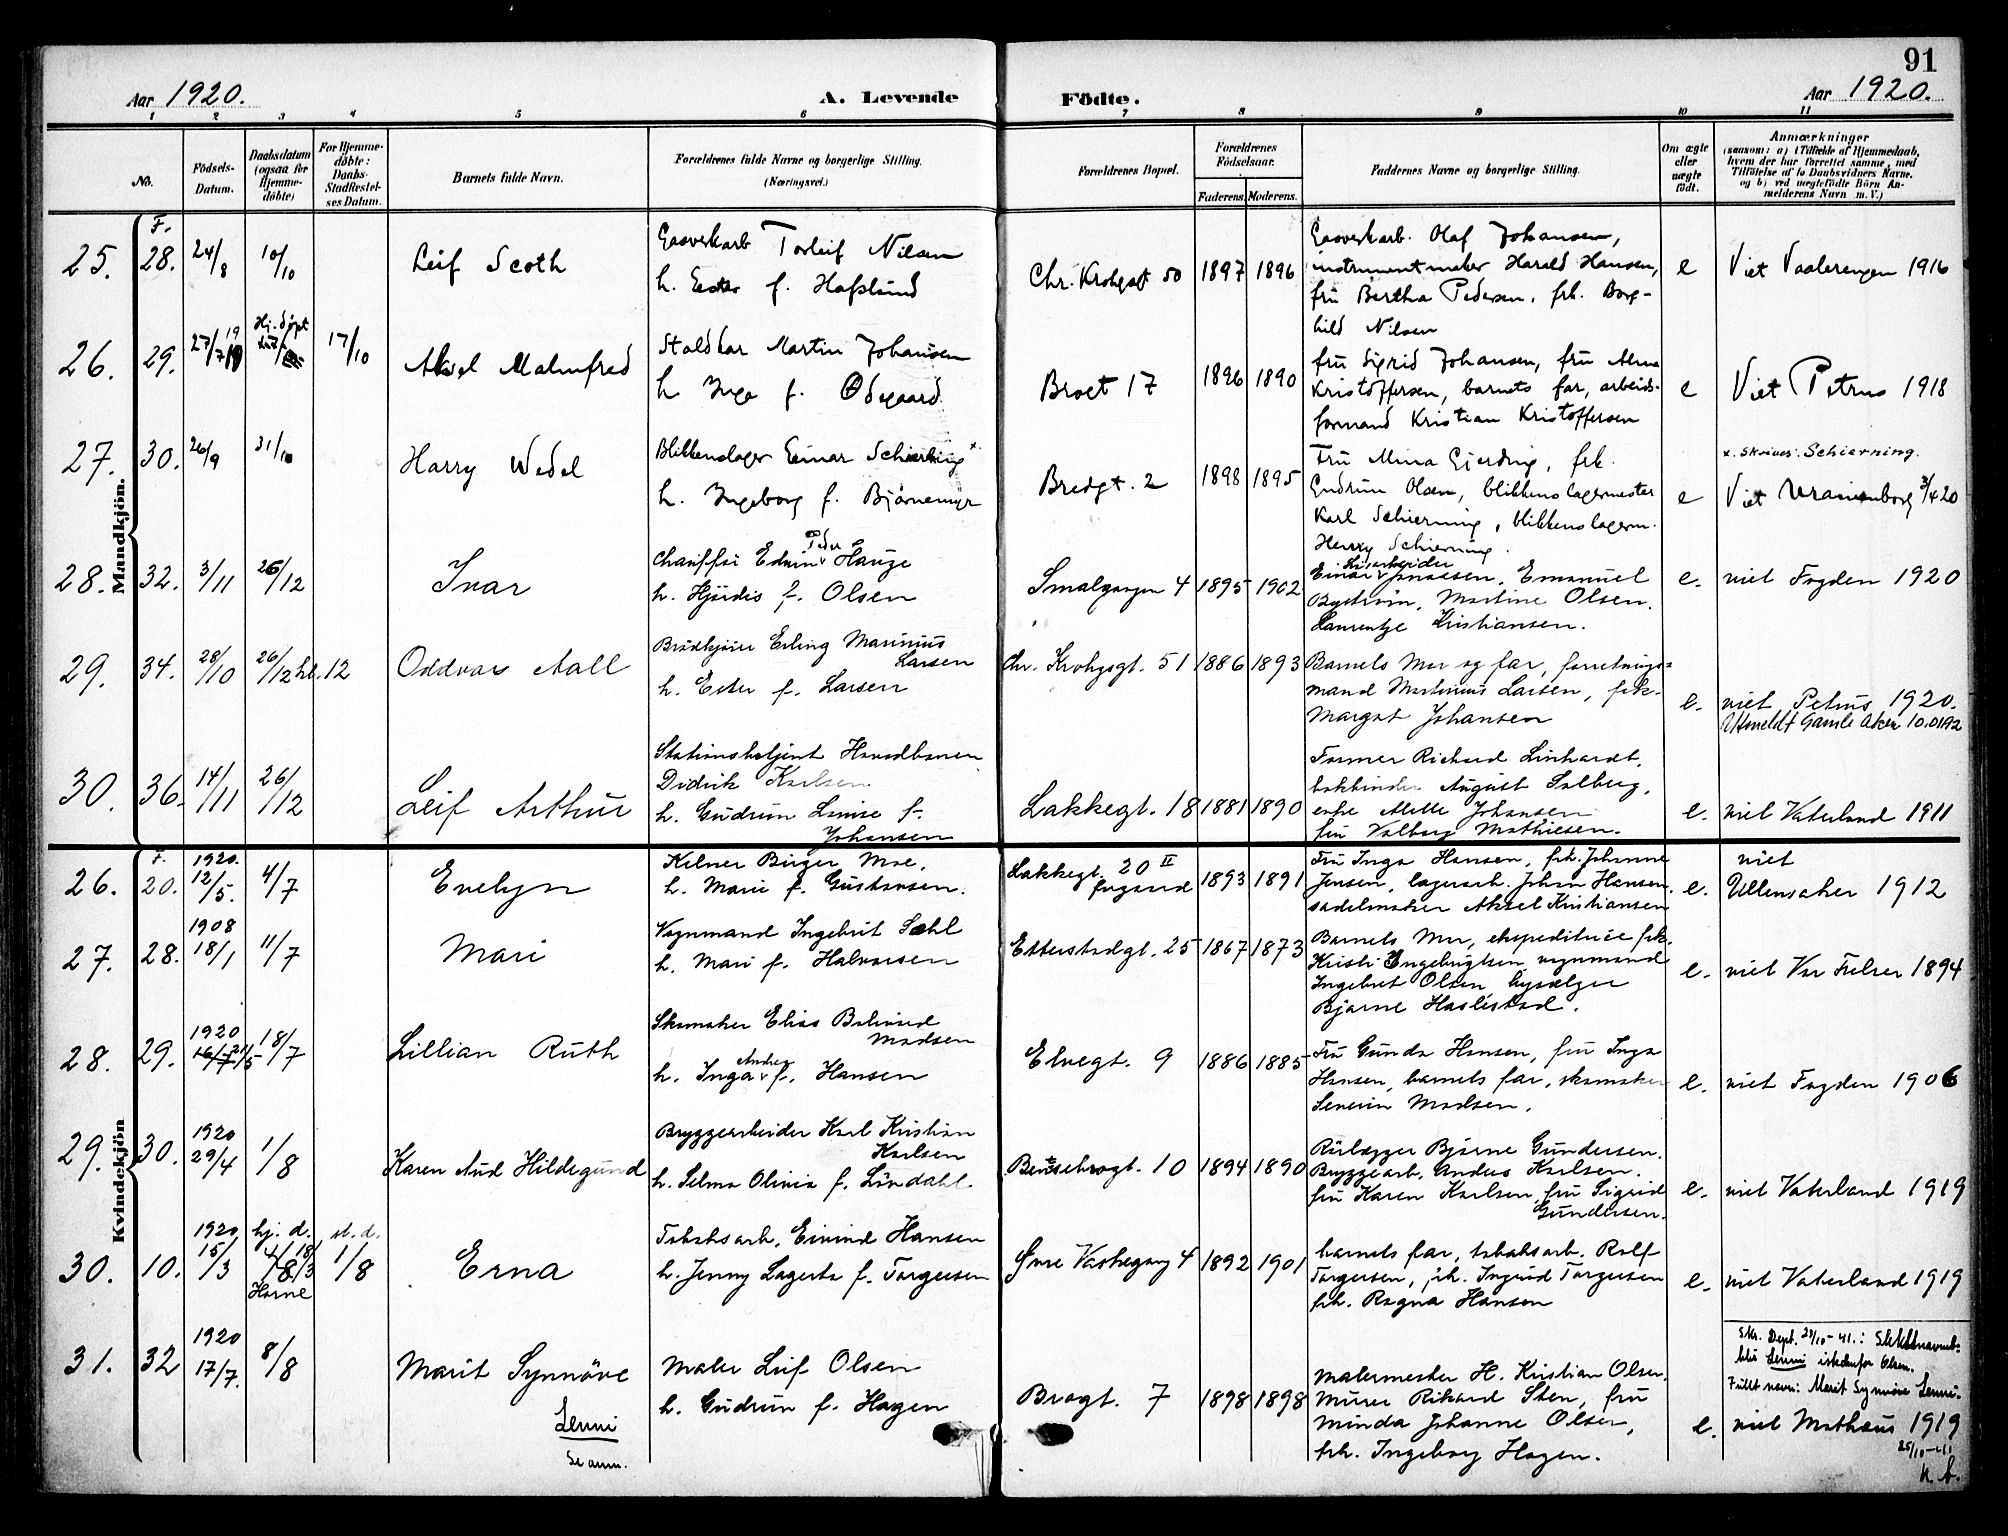 91
Aar 1920.
A. Levende Födte.
Aar 1920.
1 2 3 4 5 6 7 8 9 10 11
No.
Födsels-Datum.
Daabsdatum (ogsaa for Hjemme-döbte)
For Hjemme-döbte: Daabs-Stadfæstel-ses Datum.
Barnets fulde Navn.
Forældrenes fulde Navne og borgerlige Stilling.
(Næringsvei.)
Forældrenes Bopæl.
Forældrenes Födselsaar.
Faderens. Moderens.
Faddernes Navne og borgerlige Stilling.
Om ægte eller uægte födt.
Anmærkninger
(saasom: a) i Tilfælde af Hjemmedaab,
hvem der har forrettet samme, med
Tilföielse af to Daabsvidners Navne,
og b) ved uægtefödte Börn An-
melderens Navn m. V.)
Mandkjön.
F.
25. 28. 24/8 10/10 Leif Scoth
Gasverkarb Torleif Nilsen
h. Ester f. Hafslund
Chr. Krohgsgt 50 1897 1896
Gasverkarb. Olaf Johansen,
instrumentmaker Harald Hansen,
fru Bertha Pedersen, frk. Borg-
hild Nilsen
e Viet Vaalerengen 1916
26. 29. 27/7 19 Hj. døpt 17/10 Aksel Malmfred
Staldkar Martin Johansen
h Inga f. Ødegaard
Brogt 17 1896 1890
fru Sigrid Johansen, fru Alma
Kristoffersen, barnets far, arbeids-
formand Kristian Kristoffersen
e Viet Petrus 1918
27. 30. 26/9 31/10 Harry Wedel
Blikkenslager Einar Schierling x
h. Ingeborg f. Bjørnemyr
Bredgt. 2 1898 1895
Fru Mina Gjerding, frk.
Gudrun Olsen, blikkenslagermester
Karl Schierning, blikkenslagerm.
Henry Schierning.
x. skrives: Schierning.
e Viet Uranienborg 3/4 20
28. 32. 3/11 26/12 Ivar
Chauffør Edvin Peder Hauge
h. Hjördis f. Olsen
Smalgangen 4 1895 1902
Einar Jonassen, Emanuel
Byström, Martine Olsen.
Laurentze Kristiansen.
e. viet Fagden 1920
29. 34. 28/10 26/12 hb. 12 Oddvar Aall
Brödkjører Erling Marinius
Larsen
h. Ester f. Larsen
Chr. Krohgsgt. 51 1886 1893
Barnets Mor og far, forretnings-
mand Martinius Larsen, frk.
Margot Johansen
e. viet Petrus 1920.
Utmeldt Gamle Aker
30. 36. 14/11 26/12 Leif Arthur
Stationsbetjent Hovedbanen
Didrik Karlsen
h. Gudrun Louise f.
Johansen
Lakkegt. 18 1881 1890
Former Richard Linhardt,
bokbinder August Solberg,
enke Alette Johansen
fru Valborg Mathiesen.
e. viet Vaterland 1911
Kvindekjön
F.
26. 20. 1920. 12/5. 4/7 Evelyn
Kelner Birger Moe,
h. Marie f. Gustavsen.
Lakkegt. 20 II
1893 1891
Fru Inga Hansen, frk. Johanne
Jensen, lagerarb. Johan Hansen.
sadelmaker Aksel Kristiansen
e. viet
Ullensaker 1912
27. 28. 1908 18/1 11/7 Mari
Vognmand Ingebrit Sæhl
h. Mari f. Halvorsen
Etterstadgt. 25 1867 1873
Barnets Mor, ekspeditrice frk.
Kristi Engebrigtsen vognmand
Ingebret Olsen, bysælger
Bjarne Haslestad.
e. viet Vor Frelser 1894
28. 29. 1920 21/5 18/7 Lillian Ruth
Skomaker Elias
Madsen
h. Inga Andrea f. Hansen
Elvegt. 9 1886 1885
Fru Gunda Hansen, fru Inga
Hansen, barnets far, skomaker
Severin Madsen.
e. viet Fagden 1906
29. 30. 1920 29/4 1/8 Karen Aud Hildegund
Bryggearbeider Karl Kristian
Karlsen
h. Selma Olivia f. Lövdahl.
Bentsebrogt. 10 1894 1890
Rörlægger Bjarne Gundersen.
Bryggearb. Anders Karlsen.
fru Karen Karlsen, fru Sigrid
Gundersen.
e. viet Vaterland 1919
30. 10. 1920 15/3 hj. d. 18/3 st. d. 1/8 Erna
Tobaksarb. Eivind Hansen
h. Jenny Lagerta f. Torgersen
Øvre Vaskegang 4 1892 1901
barnets far, tobaksarb. Rolf
Torgersen, frk. Ingrid Torgersen
frk. Ragna Hansen
e. viet Vaterland 1919
31. 32 1920 17/7. 8/8 Marit Synnöve
Lenni
Maler Leif Olsen
h. Gudrun f. Hagen
Brogt. 7 1898 1898
Malermester H. Kristian Olsen.
Murer Rikard Sten, fru
Minda Johanne Olsen,
frk. Ingeborg Hagen.
Skr. Dept. 23/10-41.: Slektsnavnet
blir Lenni istedenfor Olsen.
Fullt navn: Marit Synnöve Lenni.
e. viet Mathæus 1919
25/10-41